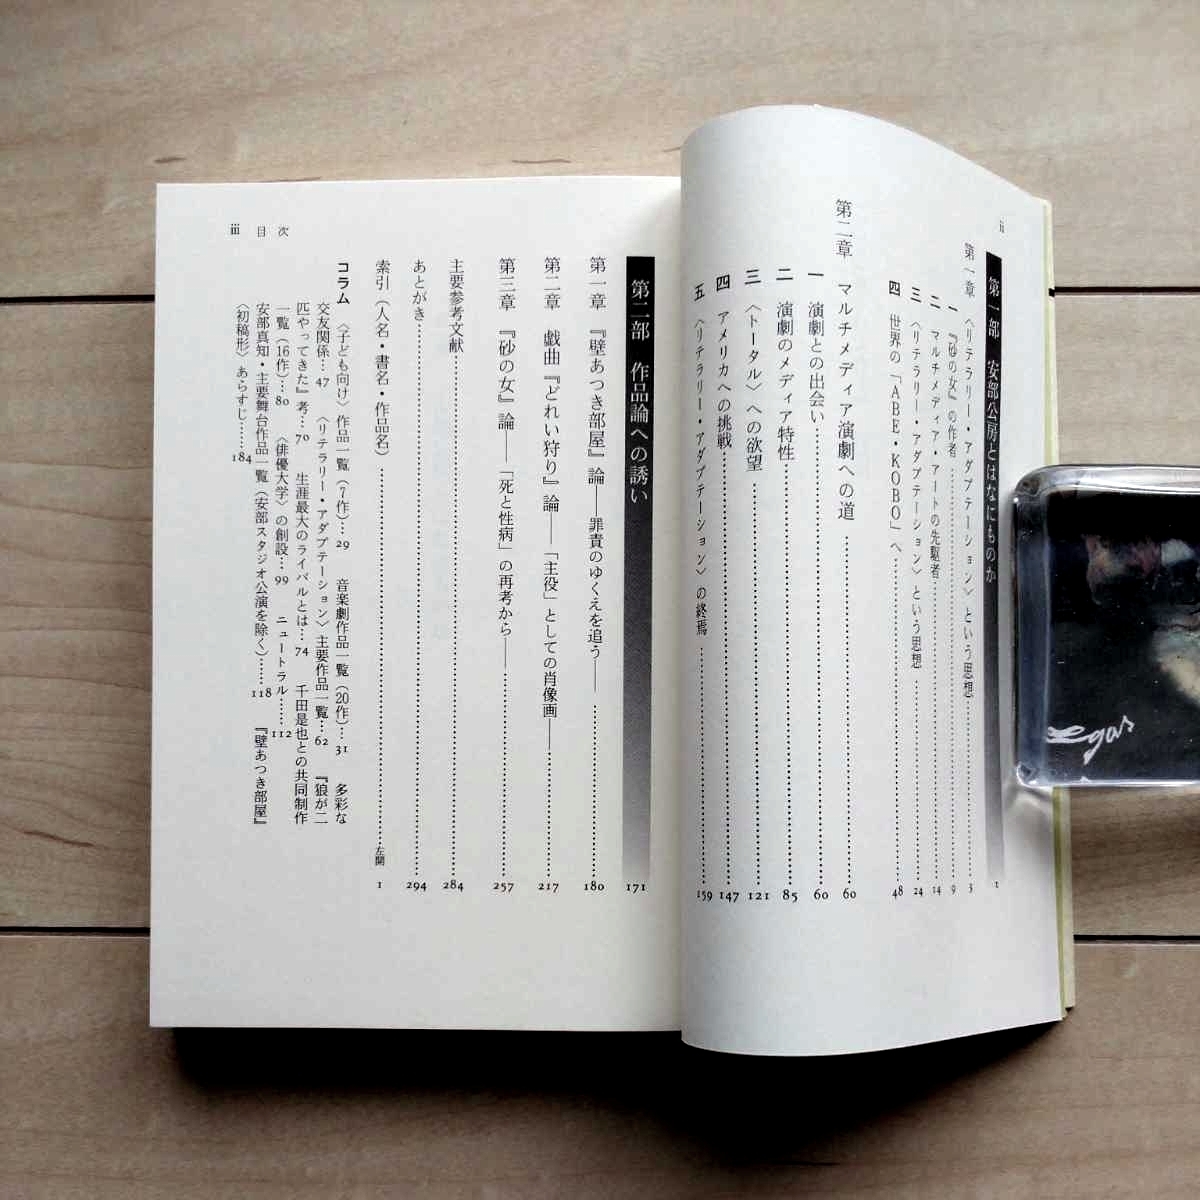 ii
第一部 安部公房とはなにものか 1
第一章 〈リテラリー・アダプテーション〉という思想 3
一 『砂の女』の作者 9
二 マルチメディア・アートの先駆者 14
三 〈リテラリー・アダプテーション〉という思想 24
四 世界の「ABE・KOBO」へ 48
第二章 マルチメディア演劇への道 60
一 演劇との出会い 60
二 演劇のメディア特性 85
三 〈トータル〉への欲望 121
四 アメリカへの挑戦 147
五 〈リテラリー・アダプテーション〉の終焉 159
第二部 作品論への誘い 171
第一章 『壁あつき部屋』論——罪責のゆくえを追う—— 180
第二章 戯曲『どれい狩り』論——「主役」としての肖像画—— 217
第三章 『砂の女』論——「死と性病」の再考から—— 257
主要参考文献 284
あとがき 294
索引（人名・書名・作品名） 左開 1
コラム 〈子ども向け〉作品一覧（7作）…29 音楽劇作品一覧（20作）…31 多彩な
交友関係…47 〈リテラリー・アダプテーション〉主要作品一覧…62 『狼が二
匹やってきた』考…70 生涯最大のライバルとは…74 千田是也との共同制作
一覧（16作）…80 〈俳優大学〉の創設…99 ニュートラル……112
安部真知・主要舞台作品一覧（安部スタジオ公演を除く）……118 『壁あつき部屋』
〈初稿形〉あらすじ……184
iii 目次
egas